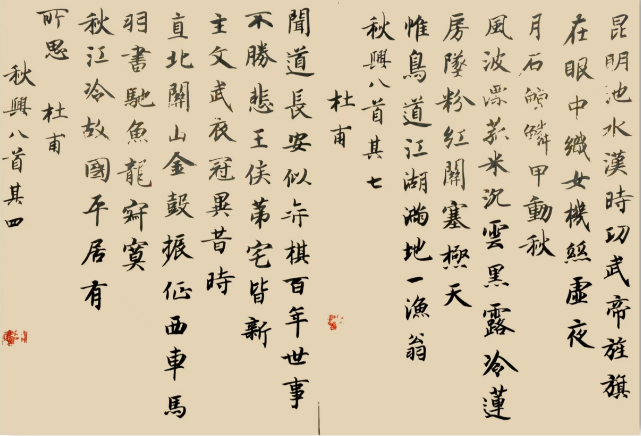 昆明池水漢時功武帝旌旗
在眼中織女機絲虛夜
月石鯨鱗甲動秋
風波漂菰米沉雲黑露冷蓮
房墜粉紅關塞極天
惟鳥道江湖滿地一漁翁
秋興八首其七
杜甫
聞道長安似弈棋百年世事
不勝悲王侯第宅皆新
主文武衣冠異昔時
直北關山金鼓振征西車馬
羽書馳魚龍寂寞
秋江冷故國平居有
所思 杜甫
秋興八首其四